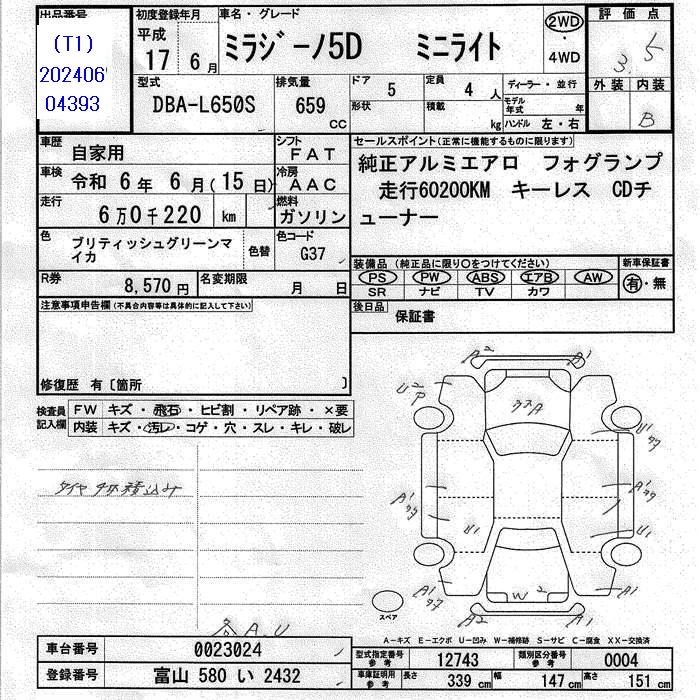 出品番号
(T1)
202406
04393
初度登録年月
平成
17 6 月
車名・グレード
ミラジーノ5D ミニライト
2WD
・
4WD
評価点
3.5
外装 内装
B
型式
DBA-L650S
排気量
659 CC
ドア 5
定員 4 人
ディーラー・並行
形状
積載 kg
モデル年式 年
ハンドル 左・右
車歴
自家用
シフト
FAT
車検 令和 6 年 6 月(15 日)
冷房
AAC
走行
6 万 0 千 220 km
燃料
ガソリン
色
ブリティッシュグリーンマイカ
色替
色コード
G37
R券
8,570 円
名変期限
月 日
セールスポイント(正常に機能するものに限ります)
純正アルミエアロ フォグランプ
走行60200KM キーレス CDチ
ューナー
装備品 (純正品に限り○をつけてください)
新車保証書
PS PW ABS エアB AW
SR ナビ TV カワ
有・無
後日品
保証書
注意事項申告欄(不具合内容等は具体的に記入して下さい)
修復歴 有〔箇所 〕
検査員
記入欄
FW キズ・飛石・ヒビ割・リペア跡・×要
内装 キズ・汚レ・コゲ・穴・スレ・キレ・破レ
タイヤ4本積込み
A2 A1
U2
P
クスA
U1
クク
A1
クク
A1
クク
U1
U1
A1
クク
W2
A2 A1
スペア
各A.U
A-キズ E-エクボ U-凹み W-補修跡 S-サビ C-腐食 XX-交換済
車台番号 0023024
登録番号 富山 580 い 2432
型式指定番号
参考
12743
類別区分番号
参考
0004
車庫証明用
参考
長さ 339 cm 幅 147 cm 高さ 151 cm